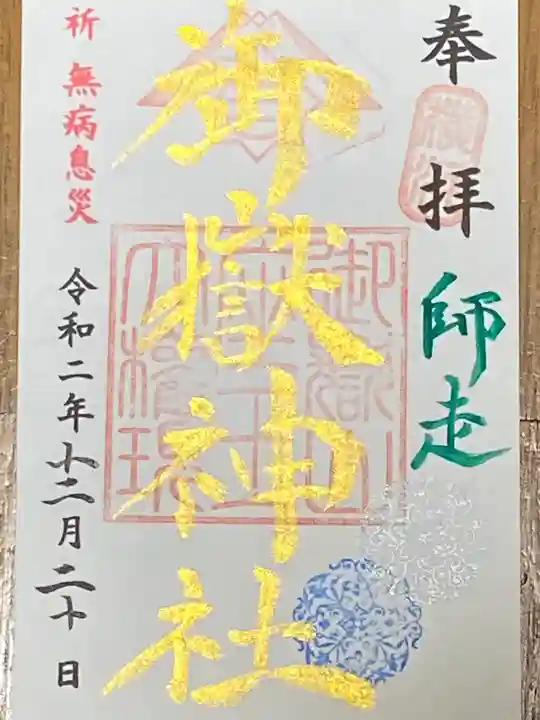 奉拝
師走
御嶽神社
祈 無病息災
令和二年十二月二十日